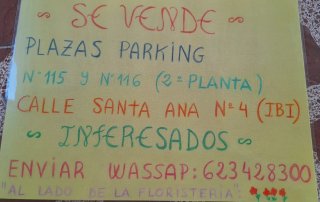 ~ SE VENDE ~
PLAZAS PARKING
Nº 115 Y Nº 116 (2ª PLANTA)
CALLE SANTA ANA Nº 4 (IBI)
~ INTERESADOS ~
ENVIAR WASSAP: 623428300
"AL LADO DE LA FLORISTERIA":